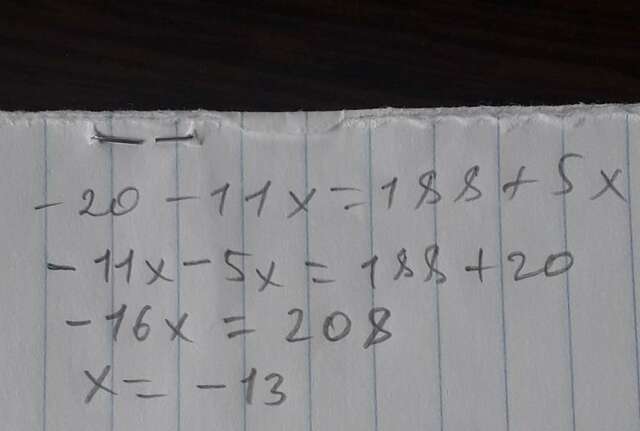 -20-11x=188+5x
-11x-5x=188+20
-16x=208
x=-13